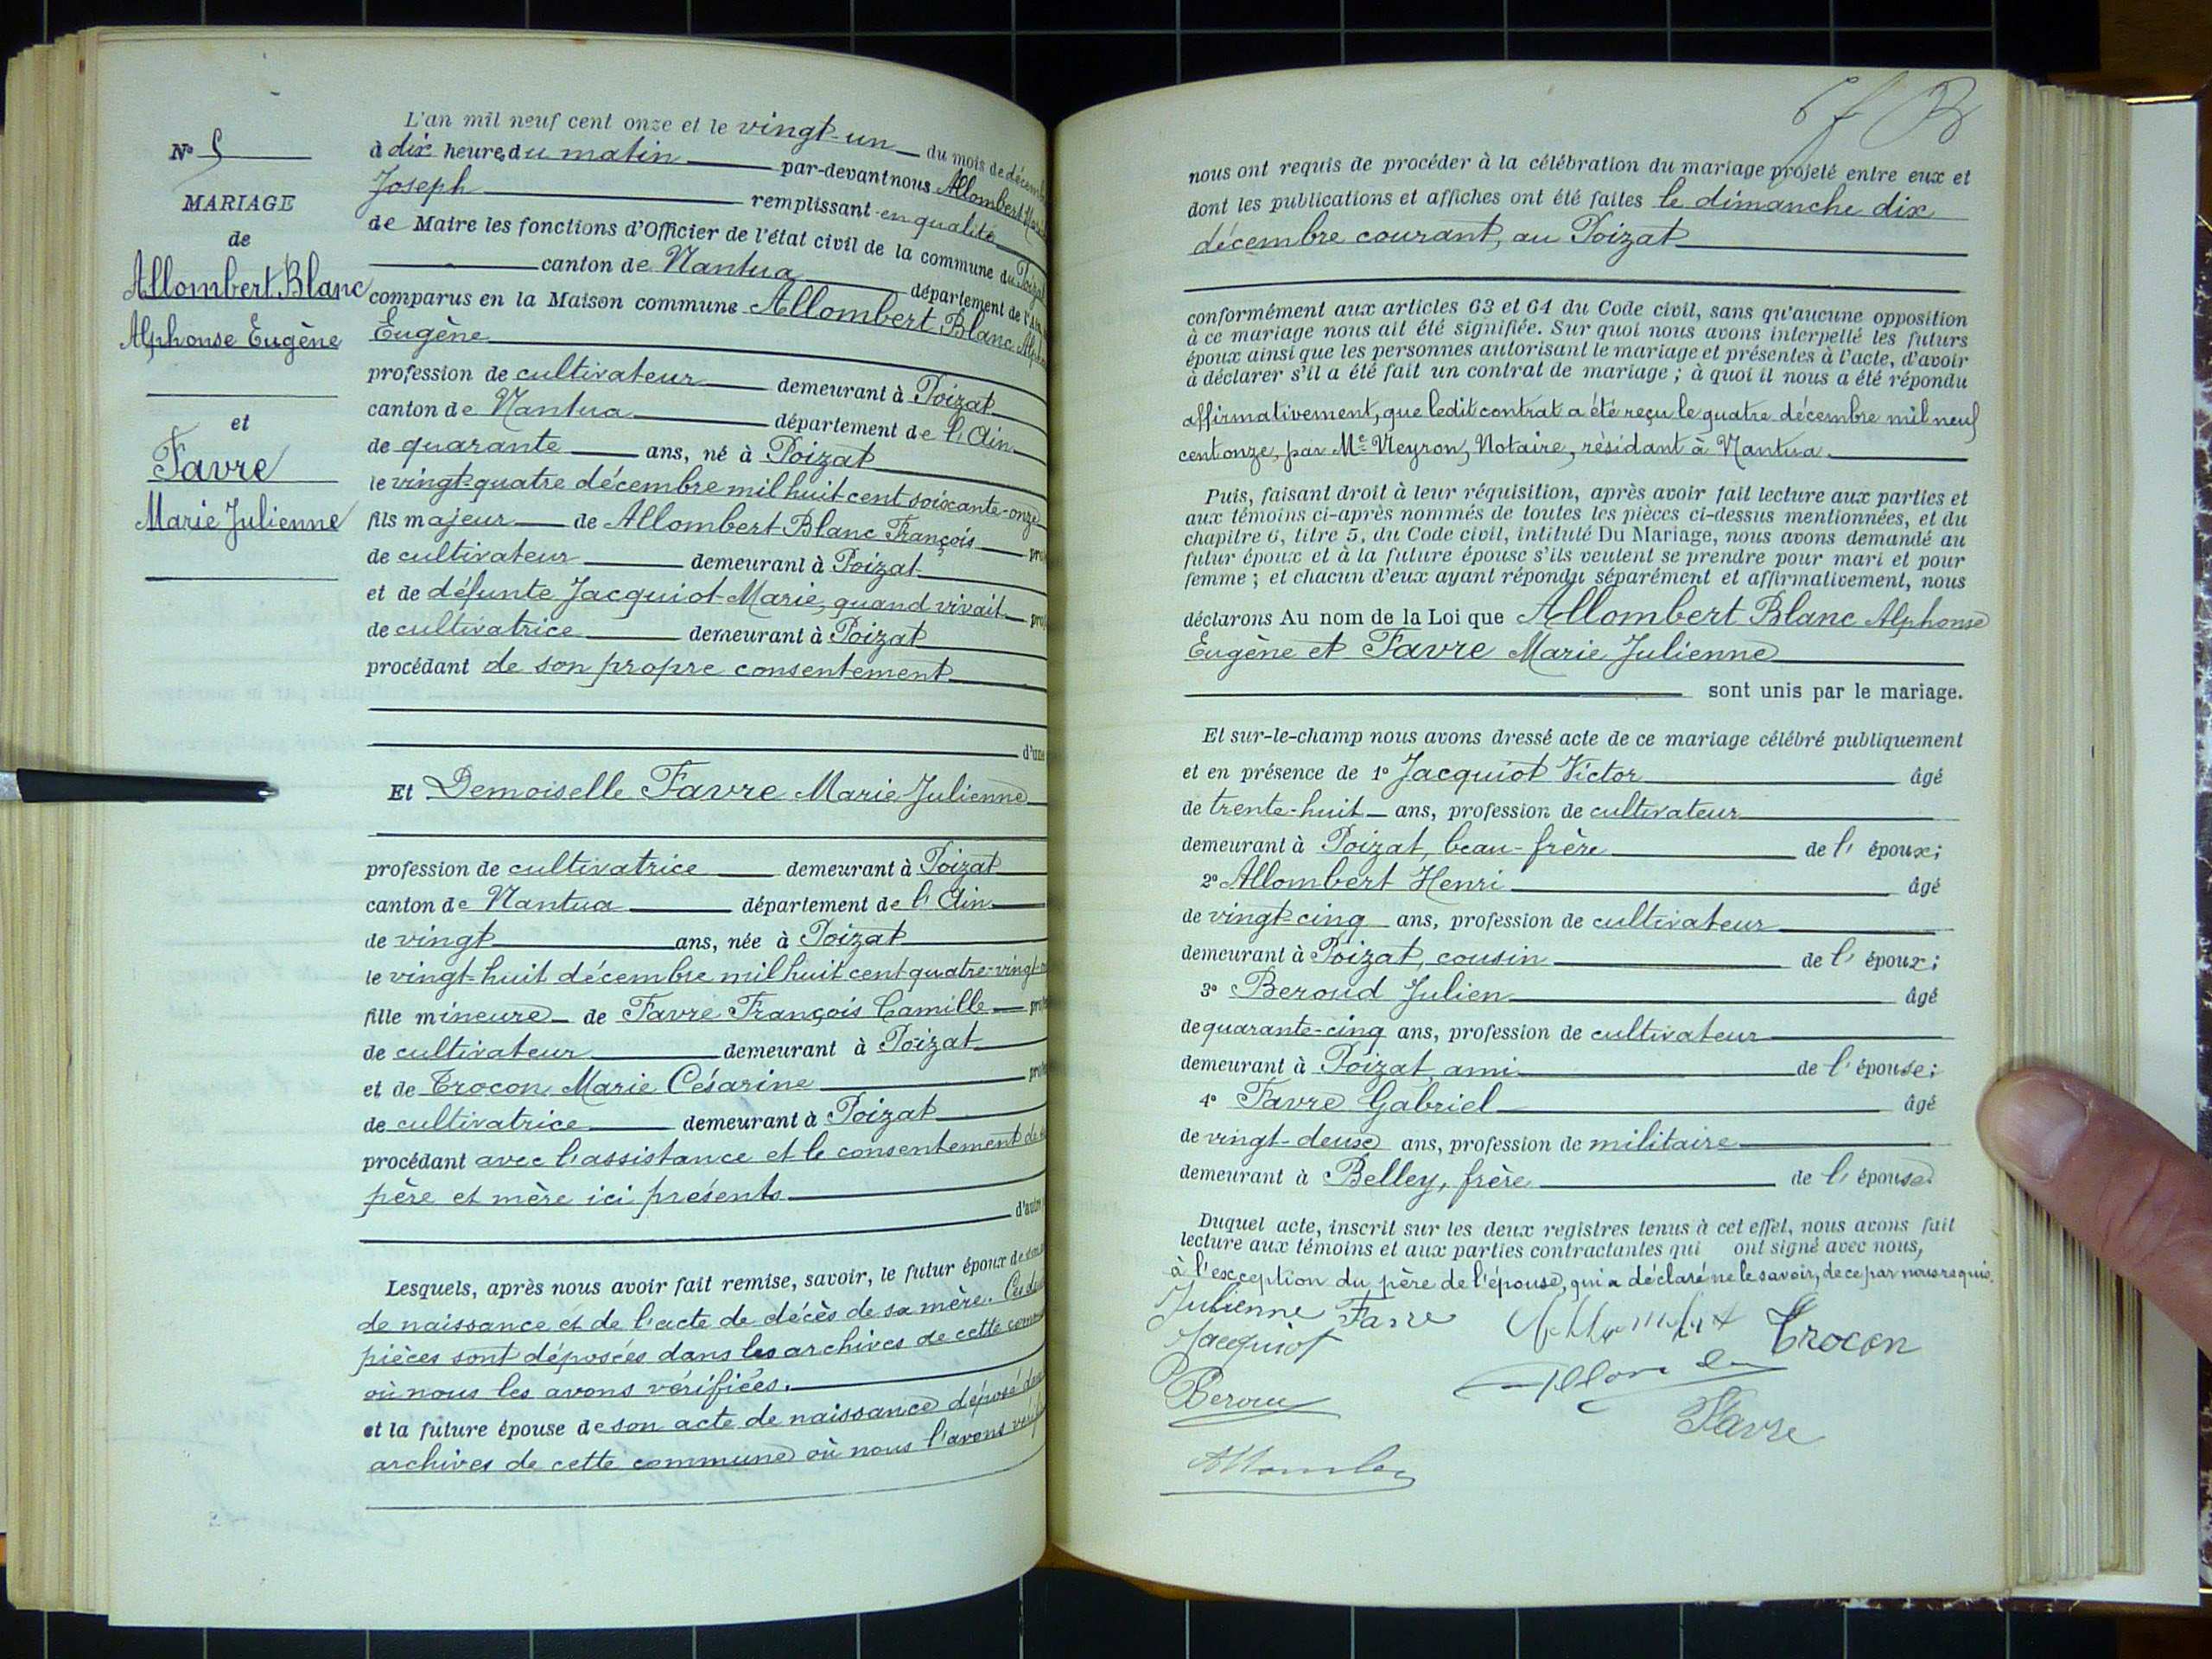 N° 5
MARIAGE
de
Allombert Blanc
Alphonse Eugène
et
Favre
Marie Julienne
L'an mil neuf cent onze et le vingt-un du mois de
à dix heures du matin par-devant nous Allombert
Joseph remplissant en qualité
de Maire les fonctions d'Officier de l'état civil de la commune du Poizat
canton de Nantua département de l'Ain
comparus en la Maison commune Allombert Blanc
Eugène
profession de cultivateur demeurant à Poizat
canton de Nantua département de l'Ain
de quarante ans, né à Poizat
le vingt-quatre décembre mil huit cent soixante-onze
fils majeur de Allombert-Blanc François
de cultivateur demeurant à Poizat
et de défunte Jacquiot Marie, quand vivait
de cultivatrice demeurant à Poizat
procédant de son propre consentement
d'une
Et Demoiselle Favre Marie Julienne
profession de cultivatrice demeurant à Poizat
canton de Nantua département de l'Ain
de vingt ans, née à Poizat
le vingt-huit décembre mil huit cent quatre-vingt-
fille mineure de Favre François Camille
de cultivateur demeurant à Poizat
et de Crocon Marie Césarine
de cultivatrice demeurant à Poizat
procédant avec l'assistance et le consentement de
père et mère ici présents
Lesquels, après nous avoir fait remise, savoir, le futur époux de
de naissance et de l'acte de décès de sa mère. Ces
pièces sont déposées dans les archives de cette
où nous les avons vérifiées.
et la future épouse de son acte de naissance déposé
archives de cette commune où nous l'avons
nous ont requis de procéder à la célébration du mariage projeté entre eux et
dont les publications et affiches ont été faites le dimanche dix
décembre courant, au Poizat
conformément aux articles 63 et 64 du Code civil, sans qu'aucune opposition
à ce mariage nous ait été signifiée. Sur quoi nous avons interpellé les futurs
époux ainsi que les personnes autorisant le mariage et présentes à l'acte, d'avoir
à déclarer s'il a été fait un contrat de mariage ; à quoi il nous a été répondu
affirmativement, que ledit contrat a été reçu le quatre décembre mil neuf
cent onze, par Me Neyron, Notaire, résidant à Nantua.
Puis, faisant droit à leur réquisition, après avoir fait lecture aux parties et
aux témoins ci-après nommés de toutes les pièces ci-dessus mentionnées, et du
chapitre 6, titre 5, du Code civil, intitulé Du Mariage, nous avons demandé au
futur époux et à la future épouse s'ils veulent se prendre pour mari et pour
femme ; et chacun d'eux ayant répondu séparément et affirmativement, nous
déclarons Au nom de la Loi que Allombert Blanc Alphonse
Eugène et Favre Marie Julienne
sont unis par le mariage.
Et sur-le-champ nous avons dressé acte de ce mariage célébré publiquement
et en présence de 1° Jacquiot Victor âgé
de trente-huit ans, profession de cultivateur
demeurant à Poizat, beau-frère de l' époux;
2° Allombert Henri âgé
de vingt-cinq ans, profession de cultivateur
demeurant à Poizat, cousin de l' époux;
3° Beroud Julien âgé
de quarante-cinq ans, profession de cultivateur
demeurant à Poizat, ami de l' épouse;
4° Favre Gabriel âgé
de vingt-deux ans, profession de militaire
demeurant à Belley, frère de l' épouse
Duquel acte, inscrit sur les deux registres tenus à cet effet, nous avons fait
lecture aux témoins et aux parties contractantes qui ont signé avec nous,
à l'exception du père de l'épouse, qui a déclaré ne le savoir, de ce par nous requis.
Julienne Favre Crocon
Jacquiot
Favre